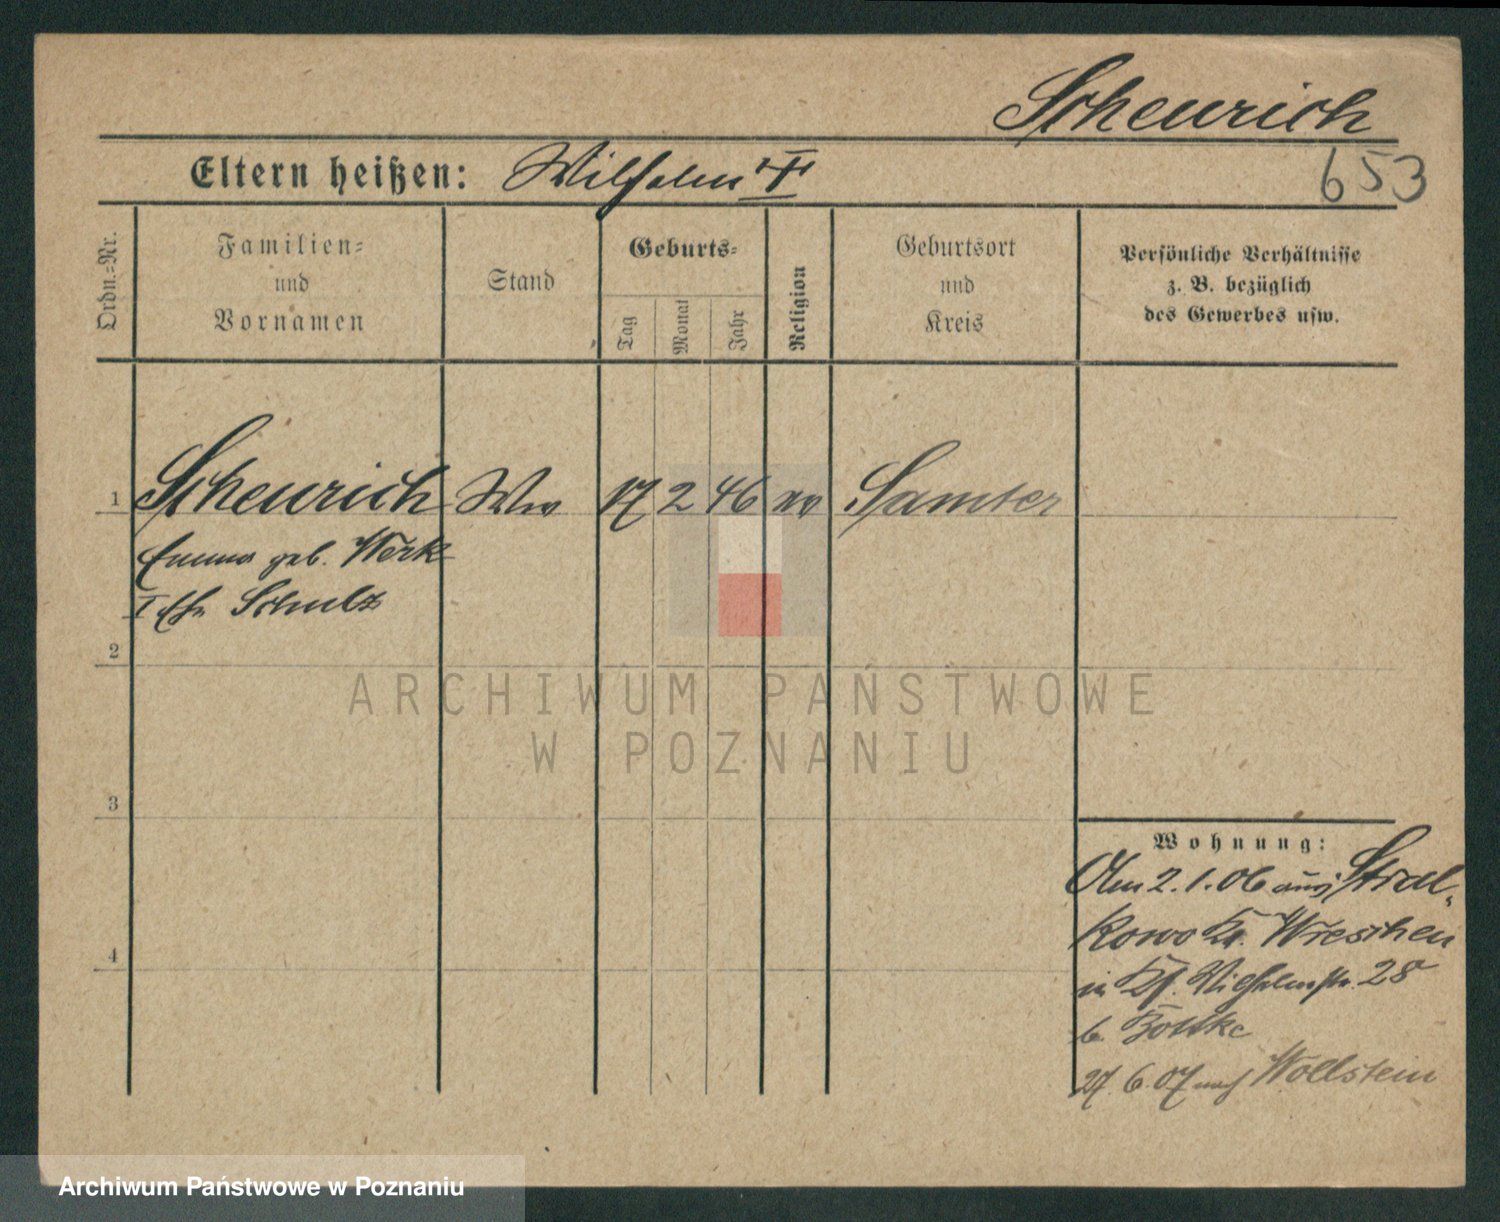 Scheurich
653
Eltern heißen: Wilhelm †
Ordn.-Nr.
Familien-
und
Vornamen
Stand
Geburts-
Tag
Monat
Jahr
Religion
Geburtsort
und
Kreis
Persönliche Verhältnisse
z. B. bezüglich
des Gewerbes usw.
1 Scheurich Ww 17 2 46 ev Samter
Emma geb. Werk
I Ehe Schulz
2
3
4
Wohnung:
Am 2.1.06 aus Stral-
kowo Kr. Wreschen
in Wilhelmstr. 28
b.
27.6.07 nach Wollstein
ARCHIWUM PAŃSTWOWE
W POZNANIU
Archiwum Państwowe w Poznaniu